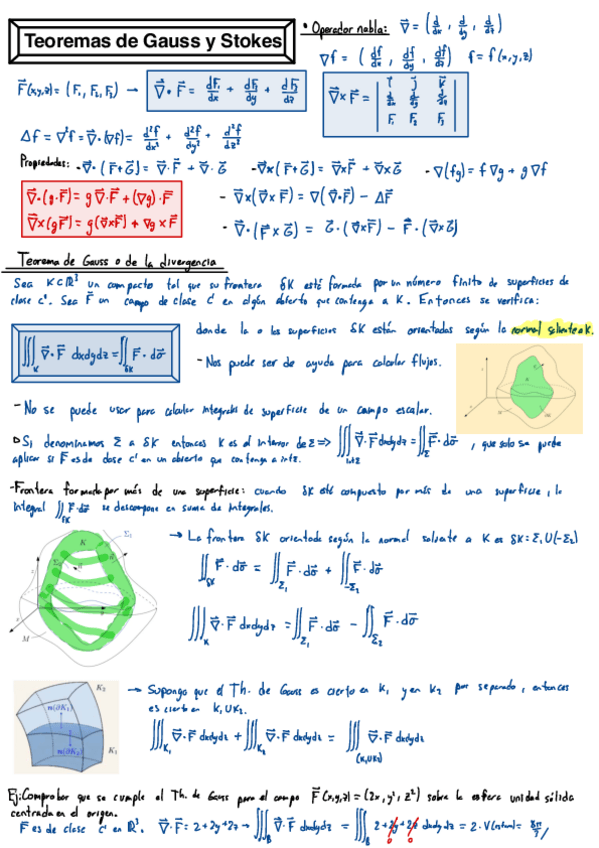 Teoremas de Gauss y Stokes
• Operador nabla: ∇⃗ = (d/dx, d/dy, d/dz)
∇f = (df/dx, df/dy, df/dz) f = f(x,y,z)
F⃗(x,y,z) = (F₁, F₂, F₃) → ∇⃗·F⃗ = dF₁/dx + dF₂/dy + dF₃/dz
∇⃗×F⃗ = | i⃗ j⃗ k⃗ |
| d/dx d/dy d/dz |
| F₁ F₂ F₃ |
Δf = ∇²f = ∇⃗·(∇f) = d²f/dx² + d²f/dy² + d²f/dz²
Propiedades: - ∇⃗·(F⃗+G⃗) = ∇⃗·F⃗ + ∇⃗·G⃗ - ∇⃗×(F⃗+G⃗) = ∇⃗×F⃗ + ∇⃗×G⃗ - ∇(fg) = f∇g + g∇f
∇⃗·(g·F⃗) = g∇⃗·F⃗ + (∇g)·F⃗
∇⃗×(gF⃗) = g(∇⃗×F⃗) + ∇g×F⃗
- ∇⃗×(∇⃗×F⃗) = ∇(∇⃗·F⃗) − ΔF⃗
- ∇⃗·(F⃗×G⃗) = G⃗·(∇⃗×F⃗) − F⃗·(∇⃗×G⃗)
Teorema de Gauss o de la divergencia
Sea K⊂ℝ³ un compacto tal que su frontera δK está formada por un número finito de superficies de
clase c¹. Sea F⃗ un campo de clase c¹ en algún abierto que contenga a K. Entonces se verifica:
∭_K ∇⃗·F⃗ dxdydz = ∬_δK F⃗·dσ⃗
donde la o las superficies δK están orientadas según la normal saliente a K.
- Nos puede ser de ayuda para calcular flujos.
- No se puede usar para calcular integrales de superficie de un campo escalar.
▷ Si denominamos Σ a δK entonces K es el interior de Σ ⇒ ∭_intΣ ∇⃗·F⃗ dxdydz = ∬_Σ F⃗·dσ⃗, que solo se puede
aplicar si F⃗ es de clase c¹ en un abierto que contenga a intΣ.
- Frontera formada por más de una superficie: cuando δK esté compuesto por más de una superficie, la
integral ∬_δK F⃗·dσ⃗ se descompone en suma de integrales.
→ La frontera δK orientada según la normal saliente a K es δK = Σ₁∪(−Σ₂)
∬_δK F⃗·dσ⃗ = ∬_Σ₁ F⃗·dσ⃗ + ∬_−Σ₂ F⃗·dσ⃗
∭_K ∇⃗·F⃗ dxdydz = ∬_Σ₁ F⃗·dσ⃗ − ∬_Σ₂ F⃗·dσ⃗
K
Σ₁
Σ₂
M
K₂
n(∂K₁)
n(∂K₂)
K₁
→ Supongo que el Th. de Gauss es cierto en K₁ y en K₂ por separado, entonces
es cierto en K₁∪K₂.
∭_K₁ ∇⃗·F⃗ dxdydz + ∭_K₂ ∇⃗·F⃗ dxdydz = ∭_(K₁∪K₂) ∇⃗·F⃗ dxdydz
Ej: Comprobar que se cumple el Th. de Gauss para el campo F⃗(x,y,z) = (2x, y², z²) sobre la esfera unidad sólida
centrada en el origen.
F⃗ es de clase c¹ en ℝ³. ∇⃗·F⃗ = 2+2y+2z → ∭_B ∇⃗·F⃗ dxdydz = ∭_B 2+2y+2z dxdydz = 2·V = 8π/3
0 0